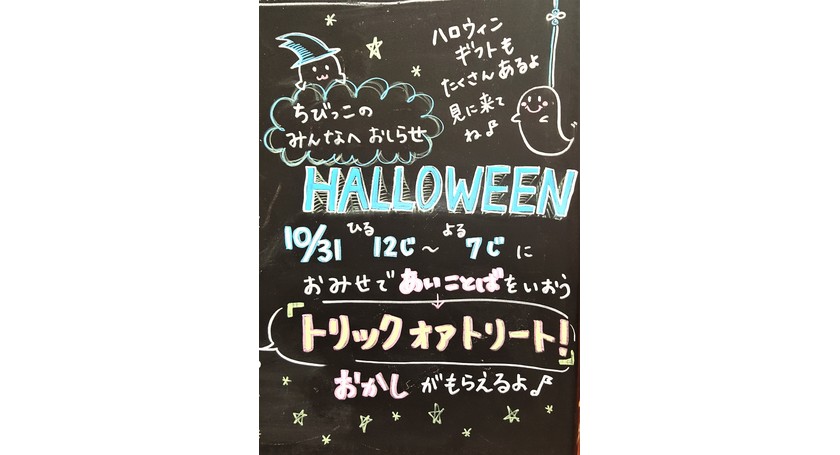 ハロウィン
ギフトも
たくさんあるよ
見に来て
ね♪
ちびっこの
みんなへ おしらせ
HALLOWEEN
10/31 ひる12じ～よる7じに
おみせであいことばをいおう
「トリックオアトリート!」
おかしがもらえるよ♪